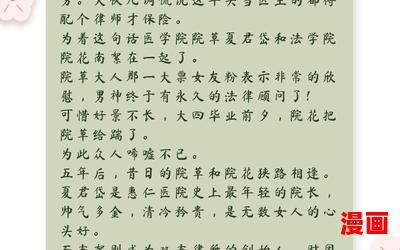 配个律师才保险。
为着这句话医学院院草夏君岱和法学院
院花南絮在一起了。
院草大人那一大票女友粉表示非常的欣
慰，男神终于有永久的法律顾问了！
可惜好景不长，大四毕业前夕，院花把
院草给踹了。
为此众人唏嘘不已。
五年后，昔日的院草和院花狭路相逢。
夏君岱是惠仁医院史上最年轻的院长，
帅气多金，清冷矜贵，是无数女人的心
头好。
漫画